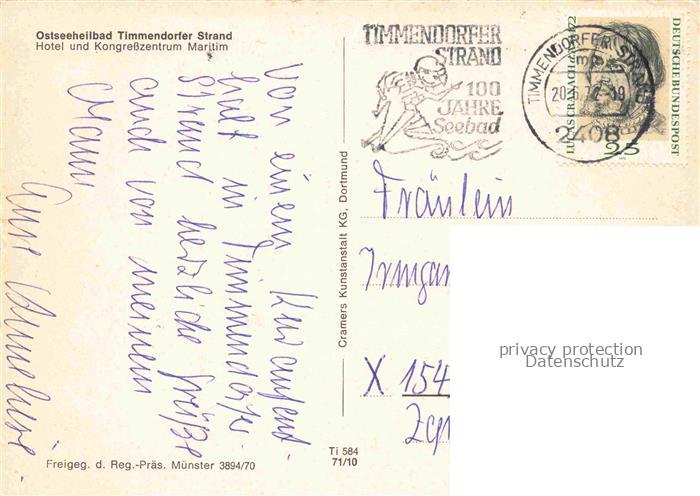 Ostseeheilbad Timmendorfer Strand
Hotel und Kongreßzentrum Maritim
TIMMENDORFER
STRAND
100
JAHRE
Seebad
TIMMENDORFER STRAND
mp
20.6.72-09
2408
LUCAS CRANACH D.Ä. 1472 1972
DEUTSCHE BUNDESPOST
25
Von einem Kuraufent-
halt in Timmendorfer
Strand herzliche Grüße
auch von meinem
Mann
Eure Anneliese
Cramers Kunstanstalt KG, Dortmund
Fräulein
Irmgar
X 154
privacy protection
Datenschutz
Freigeg. d. Reg.-Präs. Münster 3894/70
Ti 584
71/10